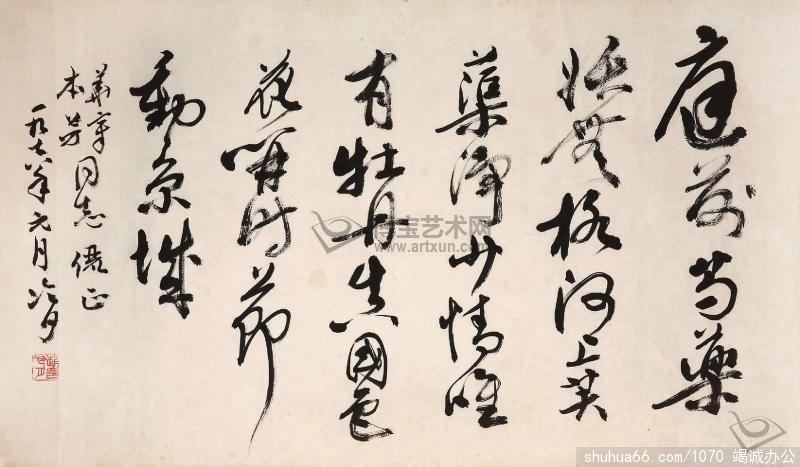 庭前芍藥
妖無格池上芙
蕖淨少情唯
有牡丹真國色
花開時節
動京城
本芳同志儷正
一九七八年元月冷月
博宝艺术网
www.artxun.com
shuhua66.com/1070 竭诚办公